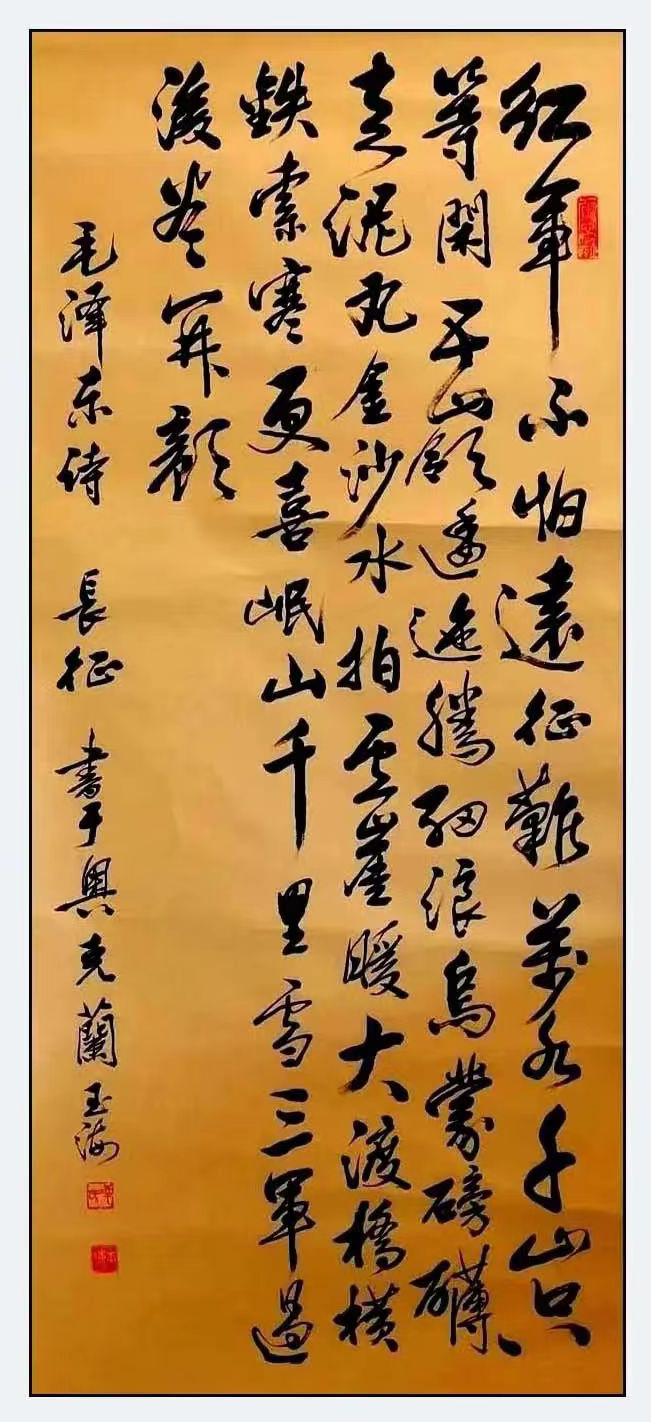 紅軍不怕遠征難萬水千山只
等閑五嶺逶迤騰細浪烏蒙磅礴
走泥丸金沙水拍云崖暖大渡橋橫
鉄索寒更喜岷山千里雪三軍過
後盡開顏
毛泽东诗 長征 書于奥克蘭玉海